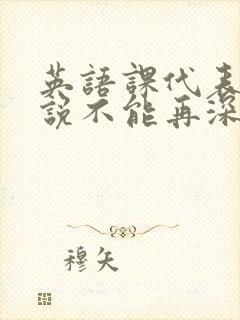 英語課代表
說不能再深
穆矢